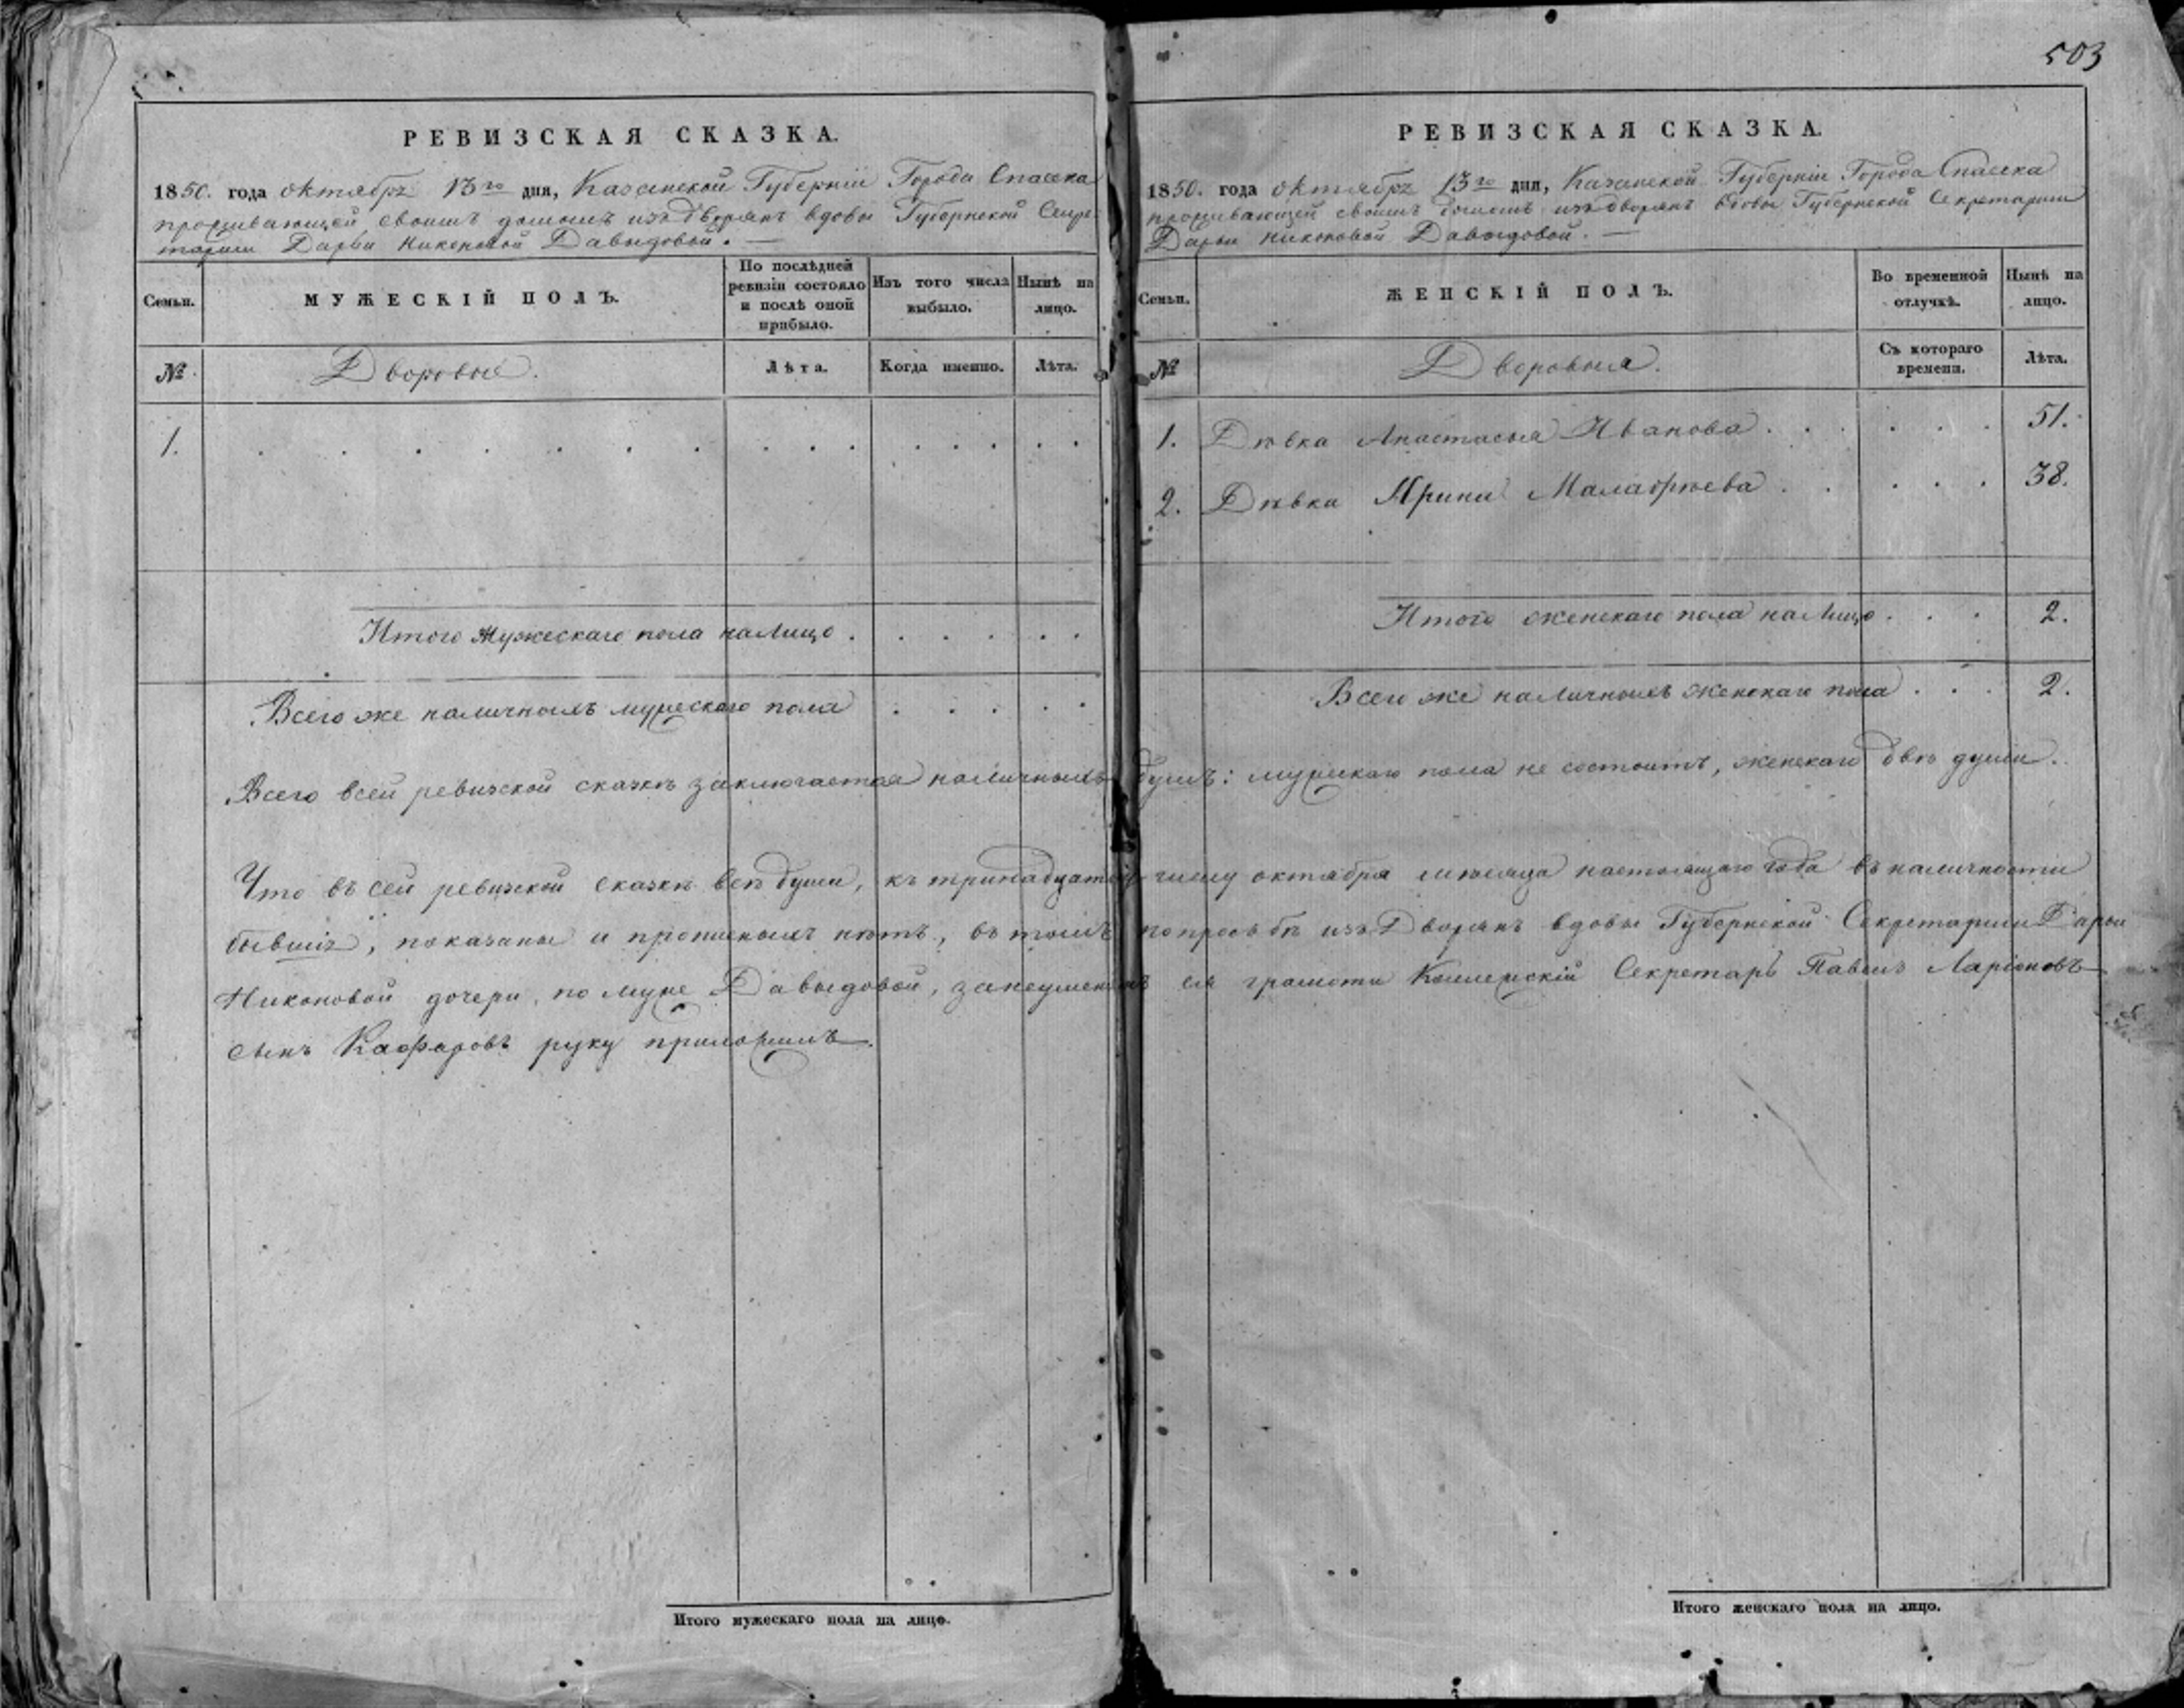 503
РЕВИЗСКАЯ СКАЗКА.
1850. года октября 13го дня, Казанской Губерніи Города Спасска
проживающей своимъ домомъ изъ дворянъ вдовы Губернской Секре-
тарши Дарьи Никоновой Давыдовой.
Семьи.
МУЖЕСКІЙ ПОЛЪ.
По послѣдней ревизіи состояло и послѣ оной прибыло.
Изъ того числа выбыло.
Нынѣ на лицо.
№
Дворовые.
Лѣта.
Когда именно.
Лѣта.
1.
Итого мужескаго пола на лицо
Всего же наличныхъ мужескаго пола
РЕВИЗСКАЯ СКАЗКА.
1850. года октября 13го дня, Казанской Губерніи Города Спасска
проживающей своимъ домомъ изъ дворянъ вдовы Губернской Секретарши
Дарьи Никоновой Давыдовой.
Семьи.
ЖЕНСКІЙ ПОЛЪ.
Во временной отлучкѣ.
Нынѣ на лицо.
№
Дворовыя.
Съ котораго времени.
Лѣта.
1. Дѣвка Анастасья Иванова 51.
2. Дѣвка Ирина Малафѣева 38.
Итого женскаго пола на лицо 2.
Всего же наличныхъ женскаго пола 2.
Всего всей ревизской сказкѣ заключается наличныхъ душъ: мужескаго пола не состоитъ, женскаго двѣ души.
Что въ сей ревизской сказкѣ всѣ души, къ тринадцатому числу октября мѣсяца настоящаго года въ наличности
бывшія, показаны и прописныхъ нѣтъ, въ томъ по прозьбѣ изъ Дворянъ вдовы Губернской Секретарши Дарьи
Никоновой дочери, по муже Давыдовой, за неуменіемъ ея грамоти Коллежскій Секретарь Павелъ Ларіоновъ
сынъ Кафаровъ руку приложилъ.
Итого мужескаго пола на лицо.
Итого женскаго пола на лицо.